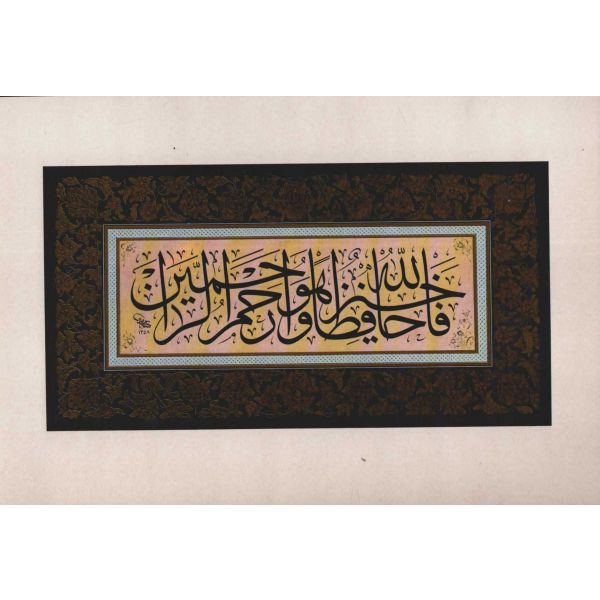 فالله خير حافظا وهو ارحم الراحمين
١٣٥٨